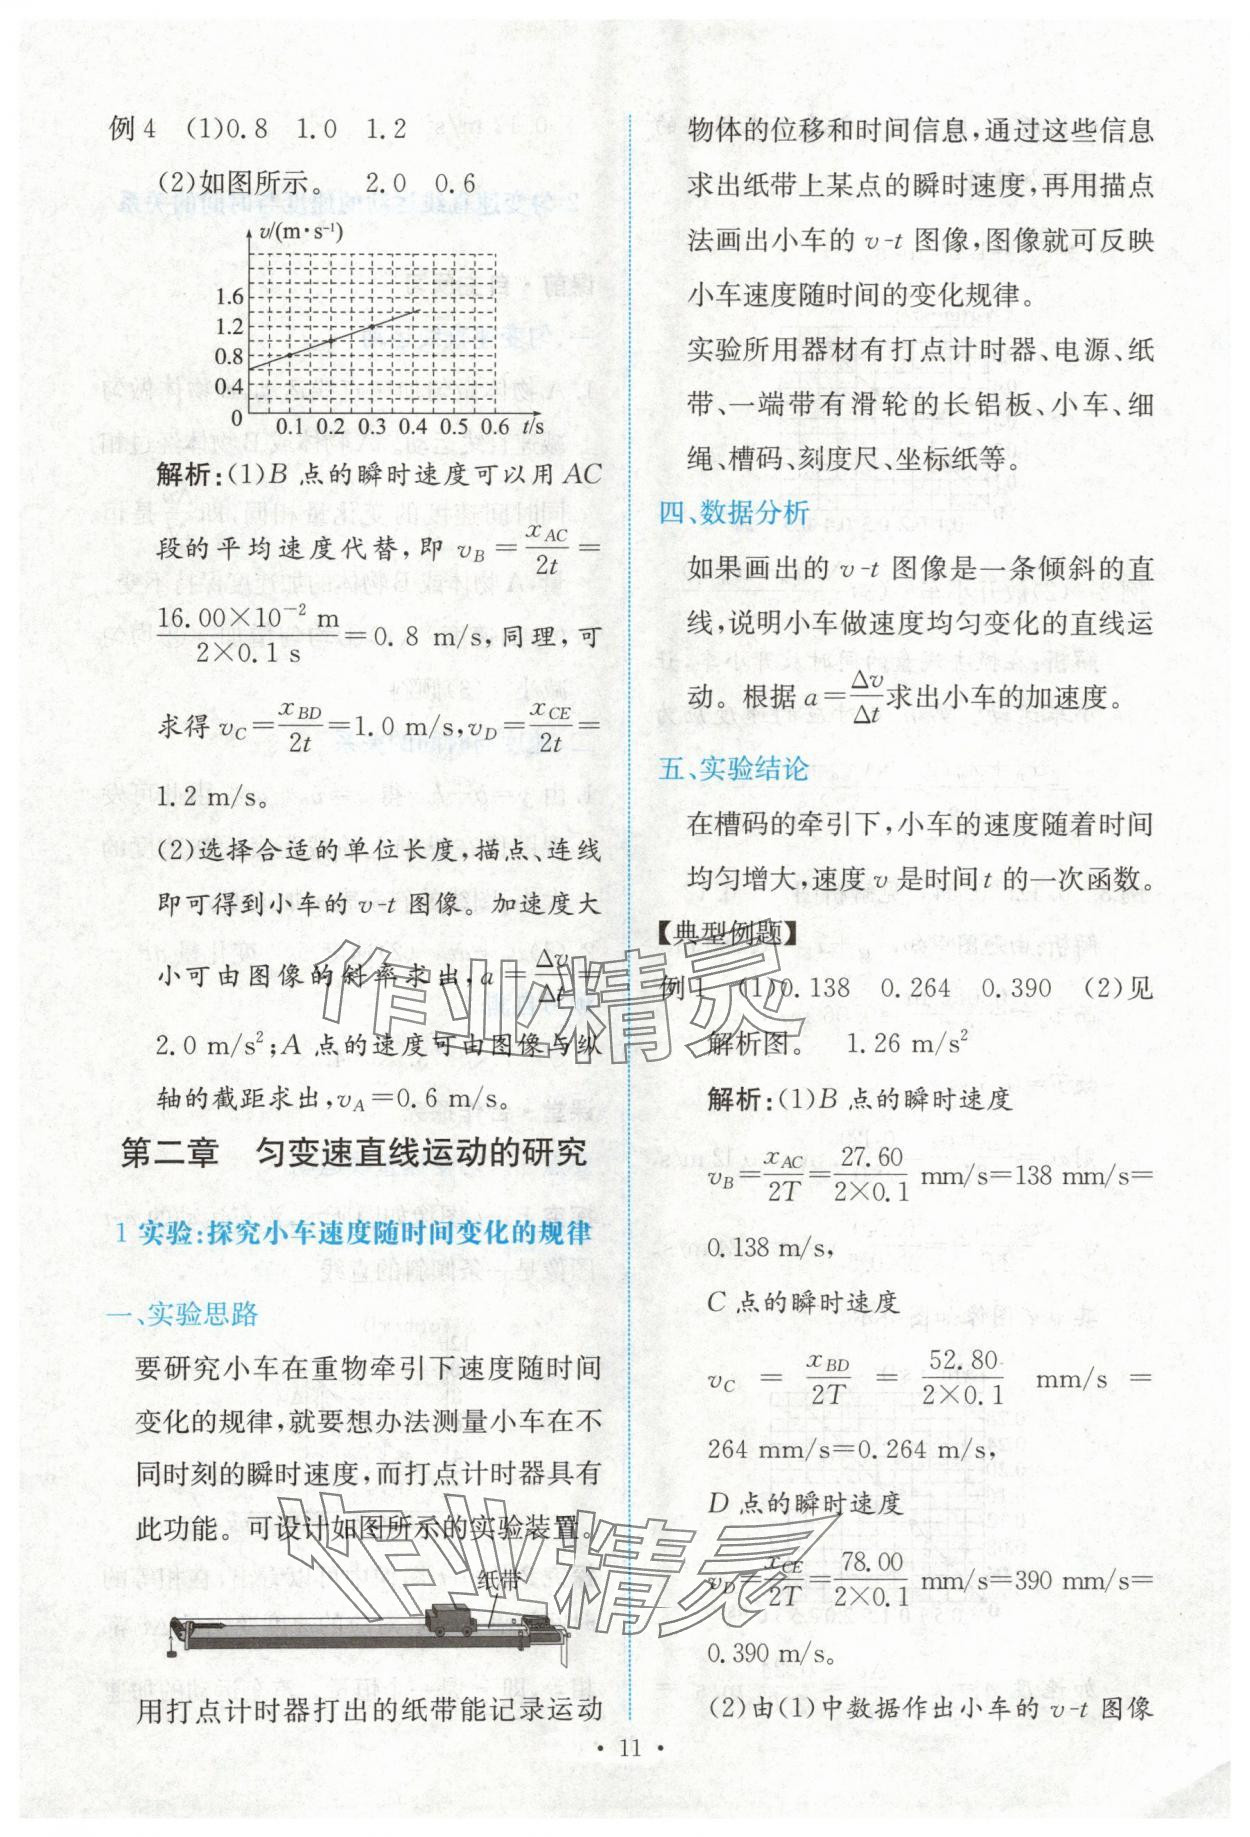 例4 (1)0.8 1.0 1.2
(2)如图所示。 2.0 0.6
v/(m·s⁻¹)
1.6
1.2
0.8
0.4
0
0.1 0.2 0.3 0.4 0.5 0.6 t/s
解析:(1)B 点的瞬时速度可以用 AC
段的平均速度代替,即 v_B = x_AC/2t =
16.00×10⁻² m/2×0.1 s=0.8 m/s,同理,可
求得 v_C=x_BD/2t=1.0 m/s,v_D=x_CE/2t=
1.2 m/s。
(2)选择合适的单位长度,描点、连线
即可得到小车的 v-t 图像。加速度大
小可由图像的斜率求出,a=Δv/Δt=
2.0 m/s²;A 点的速度可由图像与纵
轴的截距求出,v_A=0.6 m/s。
第二章 匀变速直线运动的研究
1 实验:探究小车速度随时间变化的规律
一、实验思路
要研究小车在重物牵引下速度随时间
变化的规律,就要想办法测量小车在不
同时刻的瞬时速度,而打点计时器具有
此功能。可设计如图所示的实验装置。
纸带
用打点计时器打出的纸带能记录运动
物体的位移和时间信息,通过这些信息
求出纸带上某点的瞬时速度,再用描点
法画出小车的 v-t 图像,图像就可反映
小车速度随时间的变化规律。
实验所用器材有打点计时器、电源、纸
带、一端带有滑轮的长铝板、小车、细
绳、槽码、刻度尺、坐标纸等。
四、数据分析
如果画出的 v-t 图像是一条倾斜的直
线,说明小车做速度均匀变化的直线运
动。根据 a=Δv/Δt求出小车的加速度。
五、实验结论
在槽码的牵引下,小车的速度随着时间
均匀增大,速度 v 是时间 t 的一次函数。
【典型例题】
例1 (1)0.138 0.264 0.390 (2)见
解析图。 1.26 m/s²
解析:(1)B 点的瞬时速度
v_B=x_AC/2T=27.60/2×0.1 mm/s=138 mm/s=
0.138 m/s,
C 点的瞬时速度
v_C = x_BD/2T = 52.80/2×0.1 mm/s =
264 mm/s=0.264 m/s,
D 点的瞬时速度
v_D=x_CE/2T=78.00/2×0.1 mm/s=390 mm/s=
0.390 m/s。
(2)由(1)中数据作出小车的 v-t 图像
· 11 ·
作业精灵
作业精灵